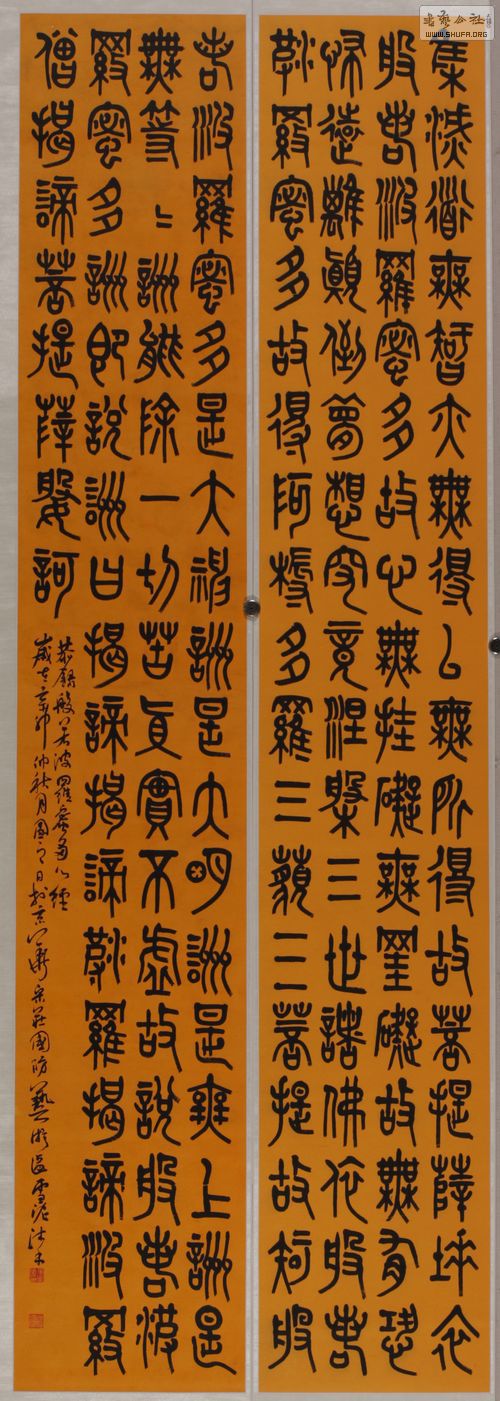 集滅道無智亦無得以無所得故菩提薩埵依
般若波羅蜜多故心無挂礙無罣礙故無有恐
怖遠離顛倒夢想究竟涅槃三世諸佛依般若
波羅蜜多故得阿耨多羅三藐三菩提故知般
若波羅蜜多是大神詶是大明詶是無上詶是
無等〻詶能除一切苦真實不虛故說般若波
羅蜜多詶即說詶曰揭諦揭諦波羅揭諦波羅
僧揭諦菩提薩婆訶
恭錄般若波羅蜜多心經
歲在辛卯仲秋月圓之日於京宋莊國防藝術區
書藝公社
WWW.SHUFA.ORG